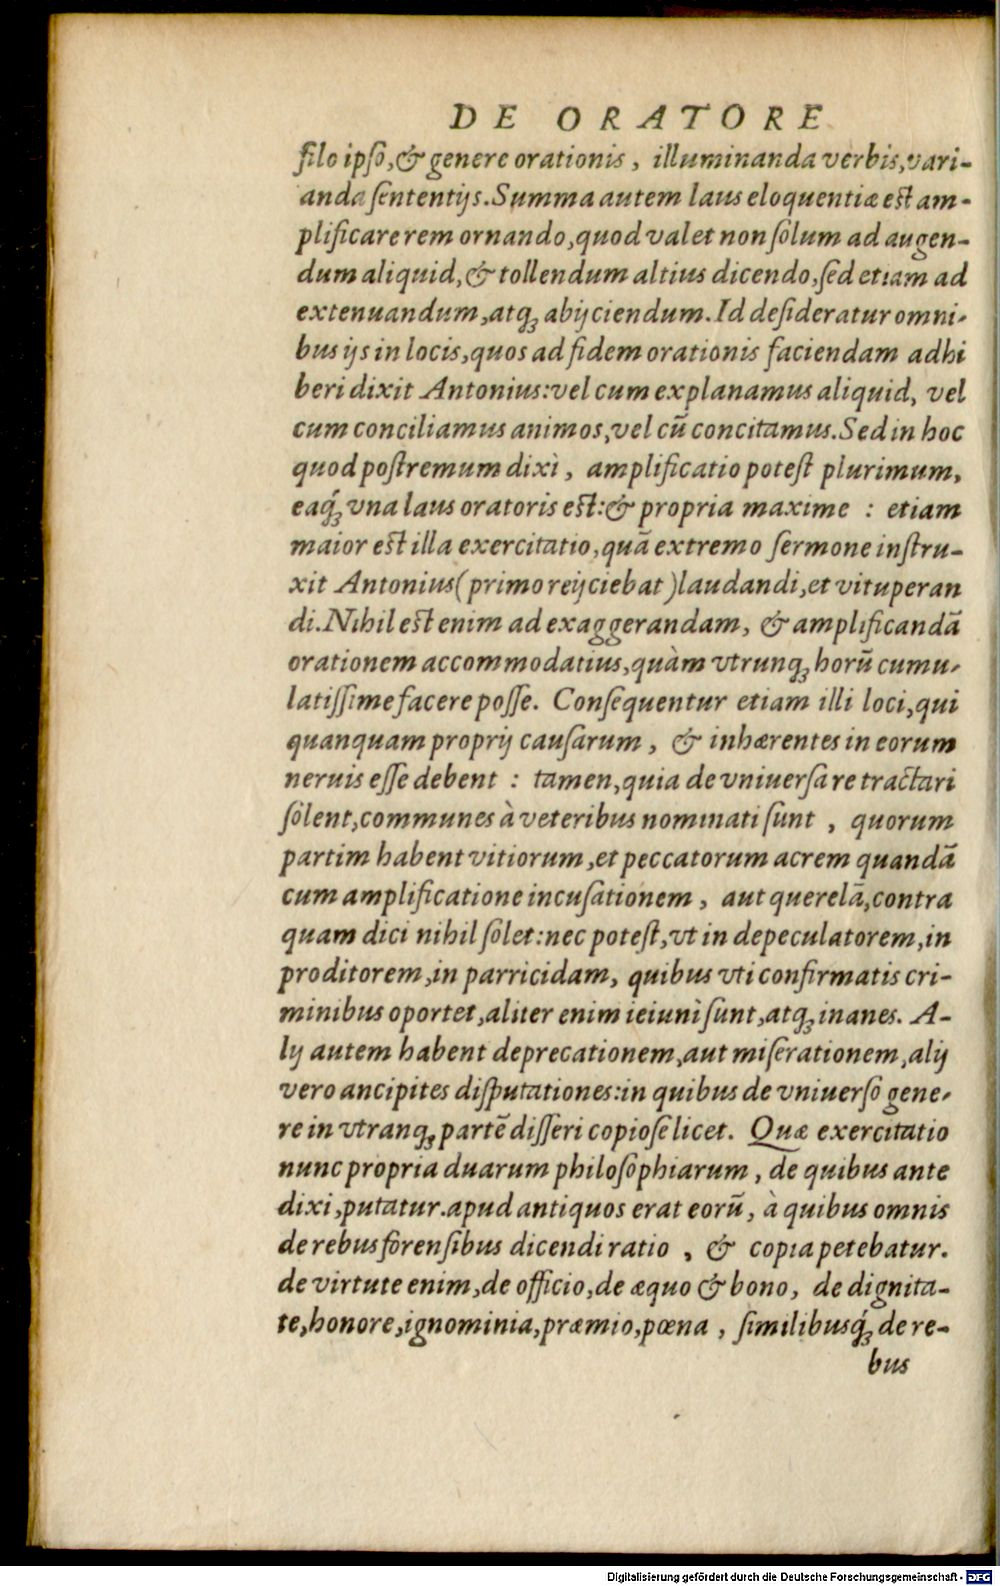 DE ORATORE
filo ipſo,& genere orationis, illuminanda verbis,vari-
anda ſententijs.Summa autem laus eloquentiæ eſt am-
plificare rem ornando,quod valet non ſolum ad augen-
dum aliquid,& tollendum altius dicendo,ſed etiam ad
extenuandum,atqꝫ abijciendum.Id deſideratur omni-
bus ijs in locis,quos ad fidem orationis faciendam adhi
beri dixit Antonius:vel cum explanamus aliquid, vel
cum conciliamus animos,vel cū concitamus.Sed in hoc
quod poſtremum dixì, amplificatio poteſt plurimum,
eaqꝫ́ vna laus oratoris eſt:& propria maxime : etiam
maior eſt illa exercitatio,quā extremo ſermone inſtru-
xit Antonius(primo reijciebat)laudandi,et vituperan
di.Nihil eſt enim ad exaggerandam, & amplificandā
orationem accommodatius,quàm vtrunqꝫ horū cumu-
latiſſime facere poſſe. Conſequentur etiam illi loci,qui
quanquam proprij cauſarum, & inhærentes in eorum
neruis eſſe debent : tamen,quia de vniuerſa re tractari
ſolent,communes à veteribus nominati ſunt, quorum
partim habent vitiorum,et peccatorum acrem quandā
cum amplificatione incuſationem, aut querelā,contra
quam dici nihil ſolet:nec poteſt,vt in depeculatorem,in
proditorem,in parricidam, quibus vti confirmatis cri-
minibus oportet,aliter enim ieiuni ſunt,atqꝫ inanes. A-
lij autem habent deprecationem,aut miſerationem,alij
vero ancipites diſputationes:in quibus de vniuerſo gene-
re in vtranqꝫ partē diſſeri copioſe licet. Quæ exercitatio
nunc propria duarum philoſophiarum, de quibus ante
dixi,putatur.apud antiquos erat eorū, à quibus omnis
de rebus forenſibus dicendi ratio, & copia petebatur.
de virtute enim,de officio,de æquo & bono, de dignita-
te,honore,ignominia,præmio,pœna, ſimilibusqꝫ́ de re-
bus
Digitalisierung gefördert durch die Deutsche Forschungsgemeinschaft - DFG